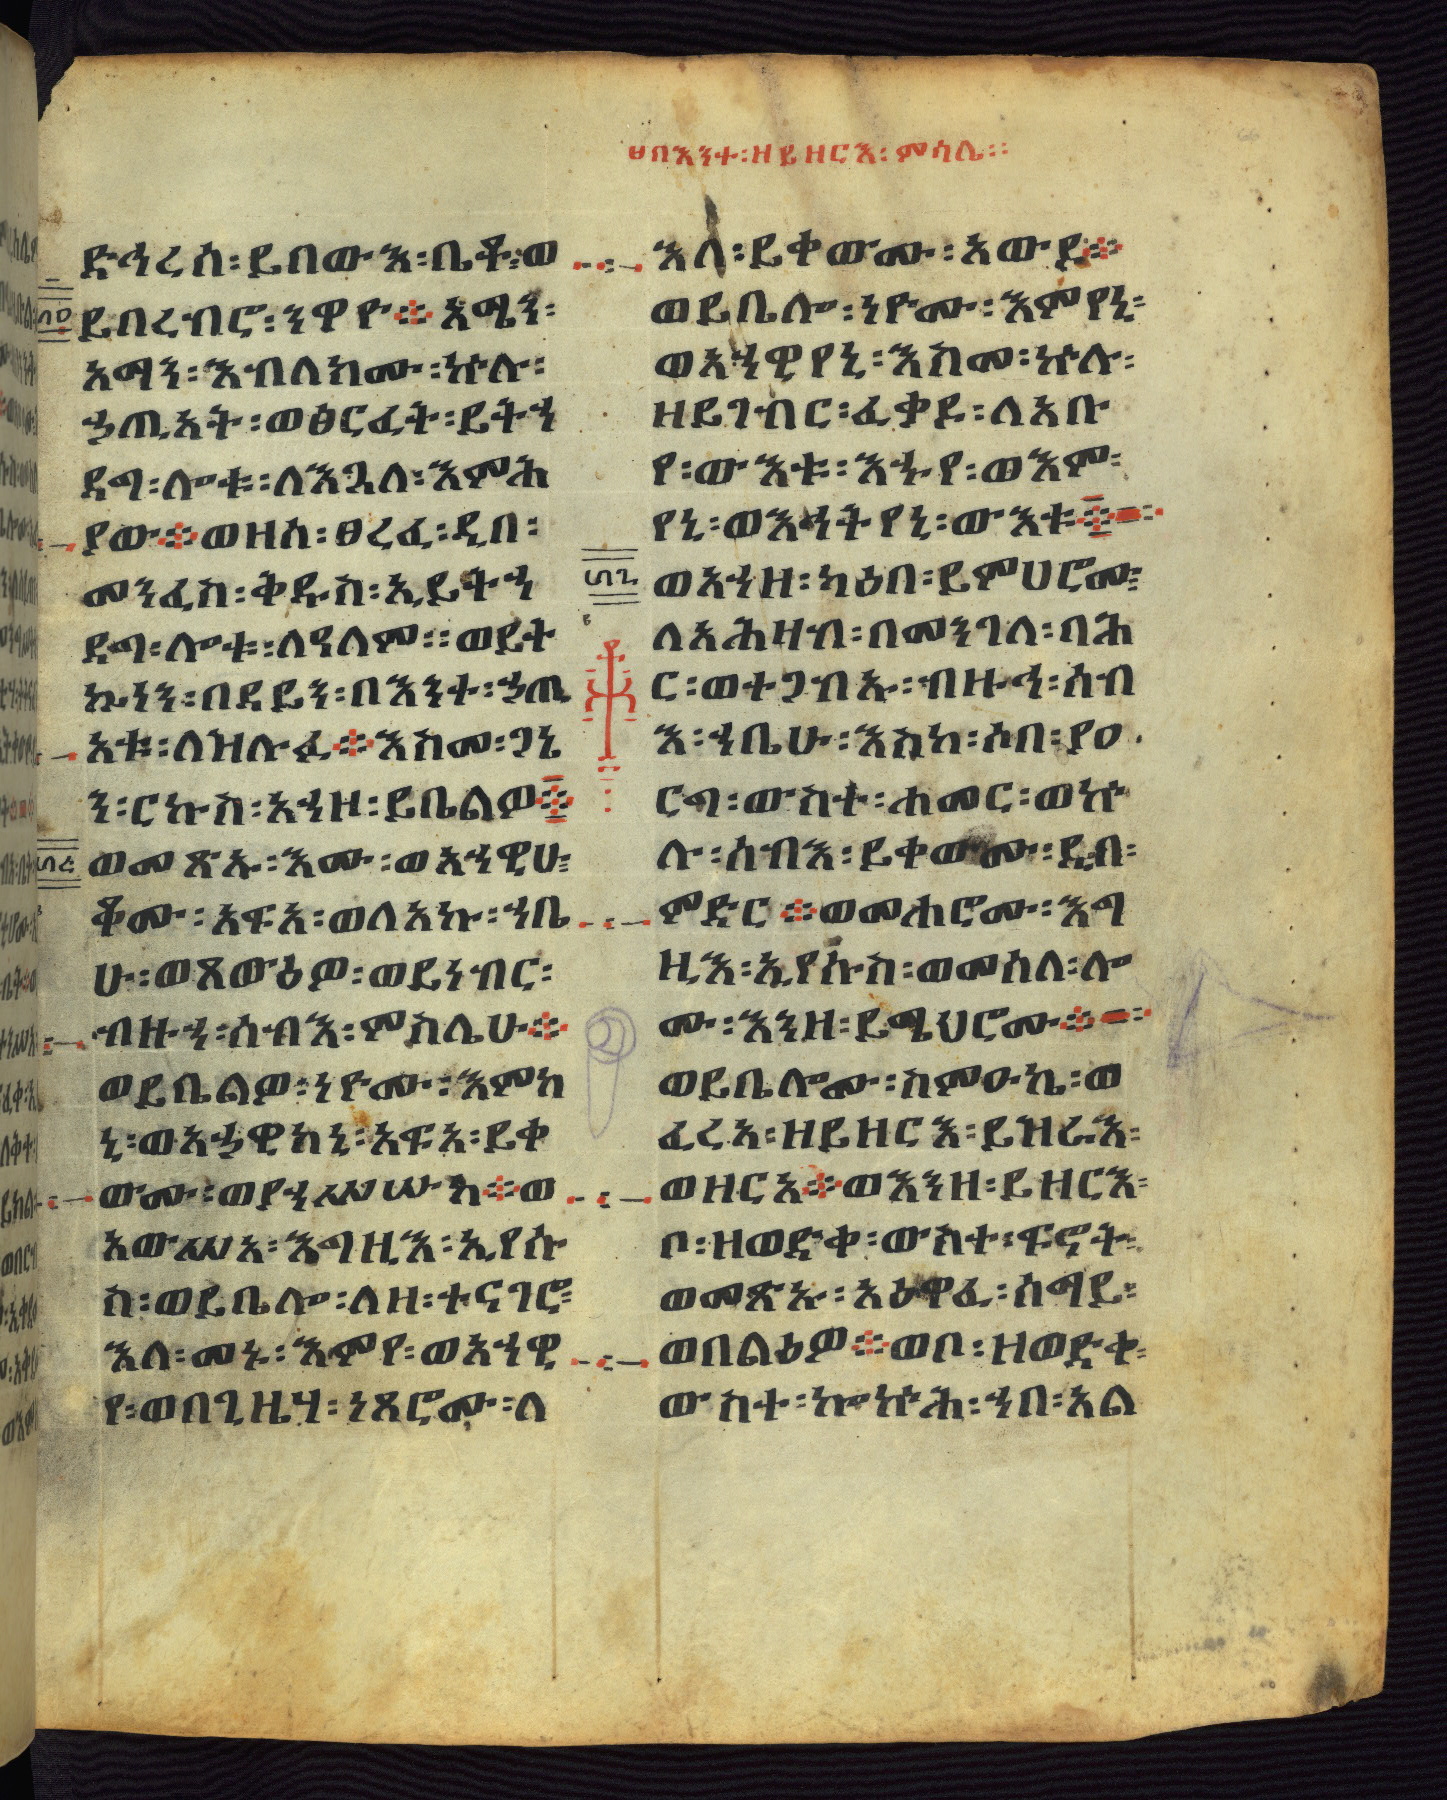 ፱በእንተ፡ዘይዘርእ፡ምሳሌ፡፡
ድኅረሰ፡ይበውእ፡ቤቶ፡ወ
ይበረብሮ፡ንዋዮ፨አሜን፡
አማን፡እብለክሙ፡ኵሉ፡
ኃጢአት፡ወፅርፈት፡ይትኀ
ደግ፡ሎቱ፡ለእጓለ፡እምሕ
ያው፨ወዘሰ፡ፀረፈ፡ዲበ፡
መንፈስ፡ቅዱስ፡ኢይትኀ
ደግ፡ሎቱ፡ለዓለም፡፡ወይት
ኴነን፡በደይን፡በእንተ፡ኃጢ
አቱ፡ለዝሉፉ፨እስመ፡ጋኔ
ን፡ርኩስ፡አኀዞ፡ይቤልዎ፨
ወመጽኡ፡እሙ፡ወአኀዊሁ፡
ቆሙ፡አፍአ፡ወለአኩ፡ኀቤ
ሁ፡ወጸውዕዎ፡ወይነብር፡
ብዙኀ፡ሰብእ፡ምስሌሁ፨
ወይቤልዎ፡ነዮሙ፡እምከ
ኒ፡ወአኃዊከኒ፡አፍአ፡ይቀ
ውሙ፡ወየኀሥሡከ፨ወ
አውሥአ፡እግዚእ፡ኢየሱ
ስ፡ወይቤሎ፡ለዘ፡ተናገሮ፡
እለ፡መኑ፡እምየ፡ወአኀዊ
የ፡ወበጊዜሃ፡ነጸሮሙ፡ለ
እለ፡ይቀውሙ፡አውዶ፨
ወይቤሎ፡ነዮሙ፡እምየኒ፡
ወአኀዊየኒ፡እስመ፡ኵሉ፡
ዘይገብር፡ፈቃዶ፡ለአቡ
የ፡ውእቱ፡እኁየ፡ወእም፡
የኒ፡ወእኅትየኒ፡ውእቱ፨
ወአኀዘ፡ካዕበ፡ይምህሮሙ፡
ለአሕዛብ፡በመንገለ፡ባሕ
ር፡ወተጋብኡ፡ብዙኅ፡ሰብ
እ፡ኀቤሁ፡እስከ፡ሶበ፡የዐ
ርግ፡ውስተ፡ሐመር፡ወኵ
ሉ፡ሰብእ፡ይቀውሙ፡ዲበ፡
ምድር፨ወመሐሮሙ፡እግ
ዚእ፡ኢየሱስ፡ወመሰለ፡ሎ
ሙ፡እንዘ፡ይሜህሮሙ፨
ወይቤሎሙ፡ስምዑኬ፡ወ
ፈረአ፡ዘይዘርእ፡ይዝራእ፡
ወዘርአ፨ወእንዘ፡ይዘርእ፡
ቦ፡ዘወድቀ፡ውስተ፡ፍኖት፡
ወመጽኡ፡አዕዋፈ፡ሰማይ፡
ወበልዕዎ፨ወቦ፡ዘወድቀ፡
ውስተ፡ኰኵሕ፡ኀበ፡አል